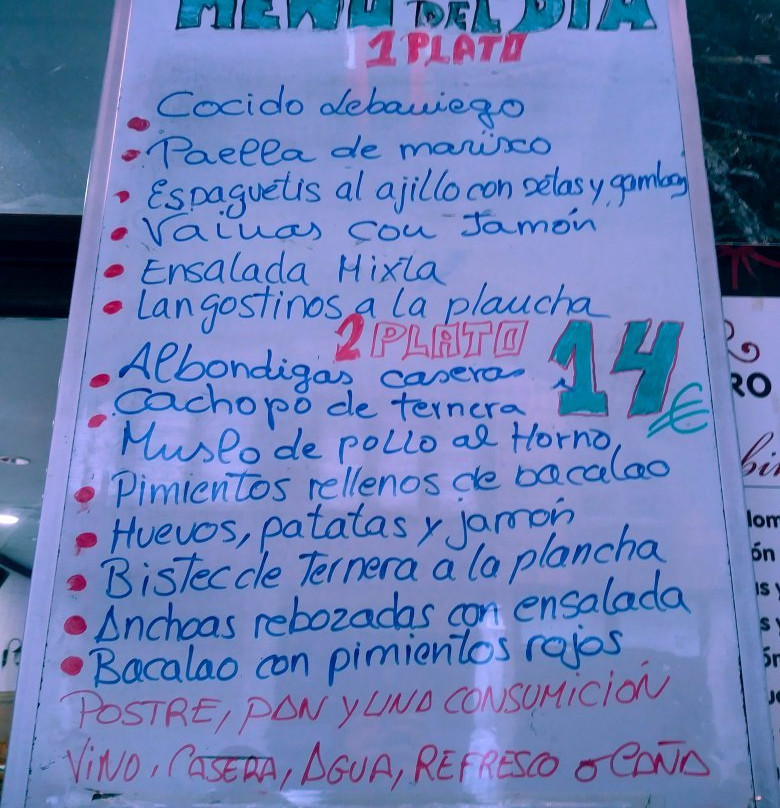 MENÚ DEL DÍA
1 PLATO
Cocido lebaniego
Paella de marisco
Espaguetis al ajillo con setas y gambas
Vainas con Jamón
Ensalada Mixta
Langostinos a la plancha
2 PLATO
14 €
Albondigas caseras
Cachopo de ternera
Muslo de pollo al Horno
Pimientos rellenos de bacalao
Huevos, patatas y jamón
Bistec de Ternera a la plancha
Anchoas rebozadas con ensalada
Bacalao con pimientos rojos
POSTRE, PAN Y UNA CONSUMICIÓN
VINO, CASERA, AGUA, REFRESCO O CAÑA